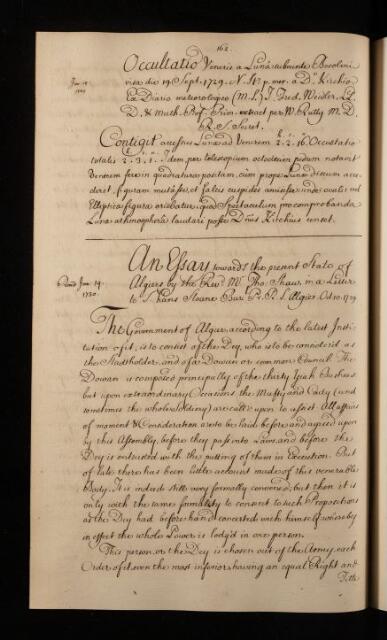 162
Occultatio Veneris a Luna subeunte Berolini
visa die 19 Sept. 1729. N. St. p. mer. a Dno Kirchio
Ex Diario meteorologico (M.S.) J. Fred. Weidler. LL.
D. & Math. Prof. Prim. extract per W. Rutty M.D.
R.S. Secret.
Contigit accessus Lunae ad Venerem 2. 2. 16. Occultatio
totalis 2. 3. 1. Idem per telescopium octodecim pedum notavit
Venerem fere in quadratura positam, cum prope Lunae discum acce-
deret, figuram mutasse, et falsis cuspides amisisse, unde ovalis vel
Elliptica figura oriebatur, quod Spectaculum pro comprobanda
Lunae athmosphaera laudari posse Dnus Kirchius censet.
An Essay towards the present State of
Algiers by the Revd. Mr. Tho. Shaw in a Letter
to Sr. Hans Sloane Bart. Pr. R.S. Algiers Oct. 10. 1729
Read Jan. 29.
1730.
The Government of Algiers according to the latest Insti-
tution of it, is to consist of the Dey, who is to be considered as
the Stadtholder, and of a Dowan or common Council. The
Dowan is composed principally of the thirty Yiah Bashaws
but upon extraordinary Occasions the Mufty and Cady (and
sometimes the whole Soldiery) are call'd upon to assist. All affairs
of moment & Consideration are to be laid before and agreed upon
by this Assembly, before they pass into Laws, and before the
Dey is entrusted with the putting of them in Execution. But
of late there has been little account made of this venerable
Body. It is indeed still very formally convened; but then it is
only with the same formality to consent to such Propositions
as the Dey had before hand concerted with himself, whereby
in effect the whole Power is lodg'd in one person.
This person, or the Dey is chosen out of the Army, each
Order of it even the most inferior having an equal Right and
Title